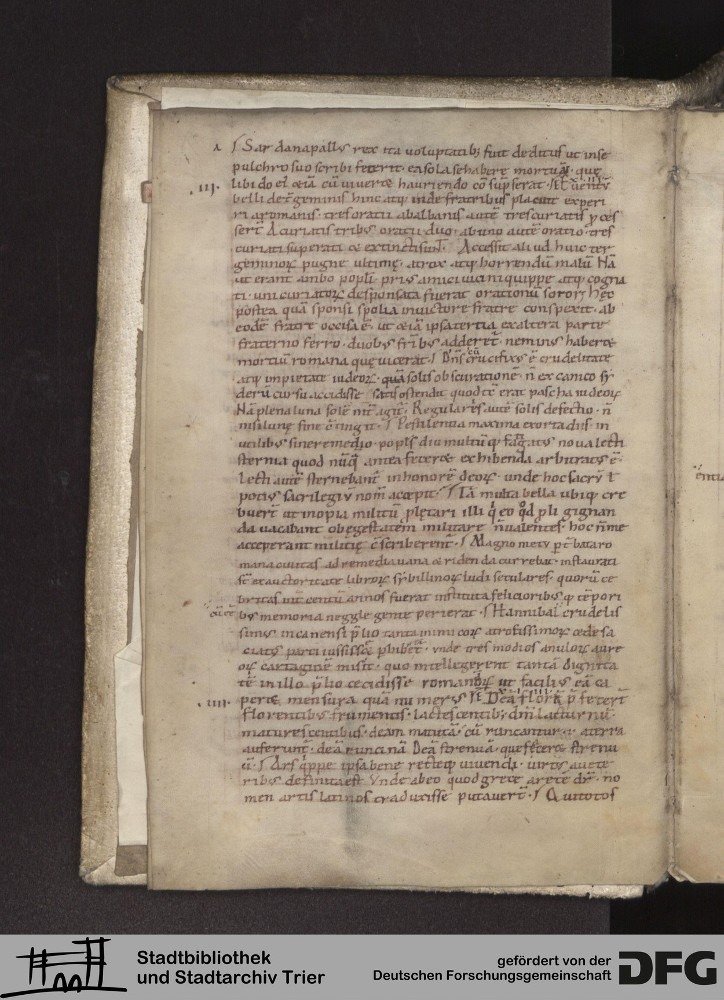 ⁊ Sardanapallꝰ rex ita voluptatibꝫ fuit deditus ut in se
pulchro suo scribi fecerit. ea sola se habere mortuū. quę
.III. libido ei᷒ etiā cū viveret hauriendo cōsūpserat.
belli de tergeminis hinc atq; inde fratribus placuit experi
ri a romanis. tres oratii ab albanis autē tres curiatii pces
sert̄ A curiatiis tribꝰ oratii duo. ab uno autē oratio tres
curiati superati & extincti sunt. Accessit aliud huic ter
geminoꝝ pugne ultimę. atrox atq; horrendū malū. Nā
ut erant ambo popli. priꝰ amici vicini quippe atq; cogna
ti. uni curiatoꝝ desponsata fuerat orationū soror. hęc
postea quā sponsi spolia in victore fratre conspexit. ab
eodē fratre occisa ē. ut etiā ipsa tertia ex altera parte
fraterno ferro. duobꝰ frībꝰ adderet̄. ne minꝰ haberet
mortiū romana quę vicerat. Dn̄s crucifixꝰ ē crudelitate
atq; impietate iudeoꝝ. quā solis obscurationē. n̄ ex canico sy
derū cursu accidisse satis ostendit quod tc̄ erat pascha iudeoꝝ
Nā plena luna solēnit̄ agit̄. Regularꝰ autē solis defectio. n̄
nisi lunę fine ctingit. Pestilentia maxima exorta diis in
utilibꝰ sine remedio. poplꝰ diu multūq; fatigatꝰ nova lecti
sternia quod nūq̄ antea fecerat exhibenda arbitratꝰ ē.
Lecti autē sternebant̄ in honorē deoꝝ. unde hoc sacrū ł
potiꝰ sacrilegiū nom̄ accepit. Iā multa bella ubiq; cre
buer̄t ut inopia militū pletarii illi q̄ eo qd pli gignen
da vacabant ob egestatem militare n̄ valentes. hoc n̄me
acceperant militię cscriberent̄. Magno metu pt̄bata ro
mana civitas ad remedia vana & ridenda currebat. instaurati
st̄ ex auctoritate libroꝝ sybillinoꝝ ludi seculares. quorū ce
britas int̄ centū annos fuerat instituta felicioribꝰq; tēpori
bꝰ memoria negglegente perierat. Hannibal crudelis
simꝰ in canensi p̄lio tanta inimicoꝝ atrocissimoꝝ cede sa
ciatꝰ parci iussisse phibet̄. unde tres modios anuloꝝ aure
oꝝ cartaginē misit. quo intellegerent tantā dignita
tē in illo p̄lio cecidisse romanoꝝ ut faciliꝰ eā ca
.IIII. peret mensura quā numerꝰ Deā florā p̄fecert̄
florentibꝰ frumentis. lactescentibꝫ. dm̄ lacturnū
maturescentibus. deam matutā. cū runcantur. i. a terra
auferunt̄. deā runcinā Deā strenuā. que faceret strenu
ū. Ars q̄ppe ipsa bene recteq; vivendi. virtꝰ a vete
ribꝰ definita est Unde ab eo quod grece arete dr̄. no
men artis latinos traduxisse putaver̄t. Qui totos
Stadtbibliothek
und Stadtarchiv Trier
gefördert von der
Deutschen Forschungsgemeinschaft
DFG